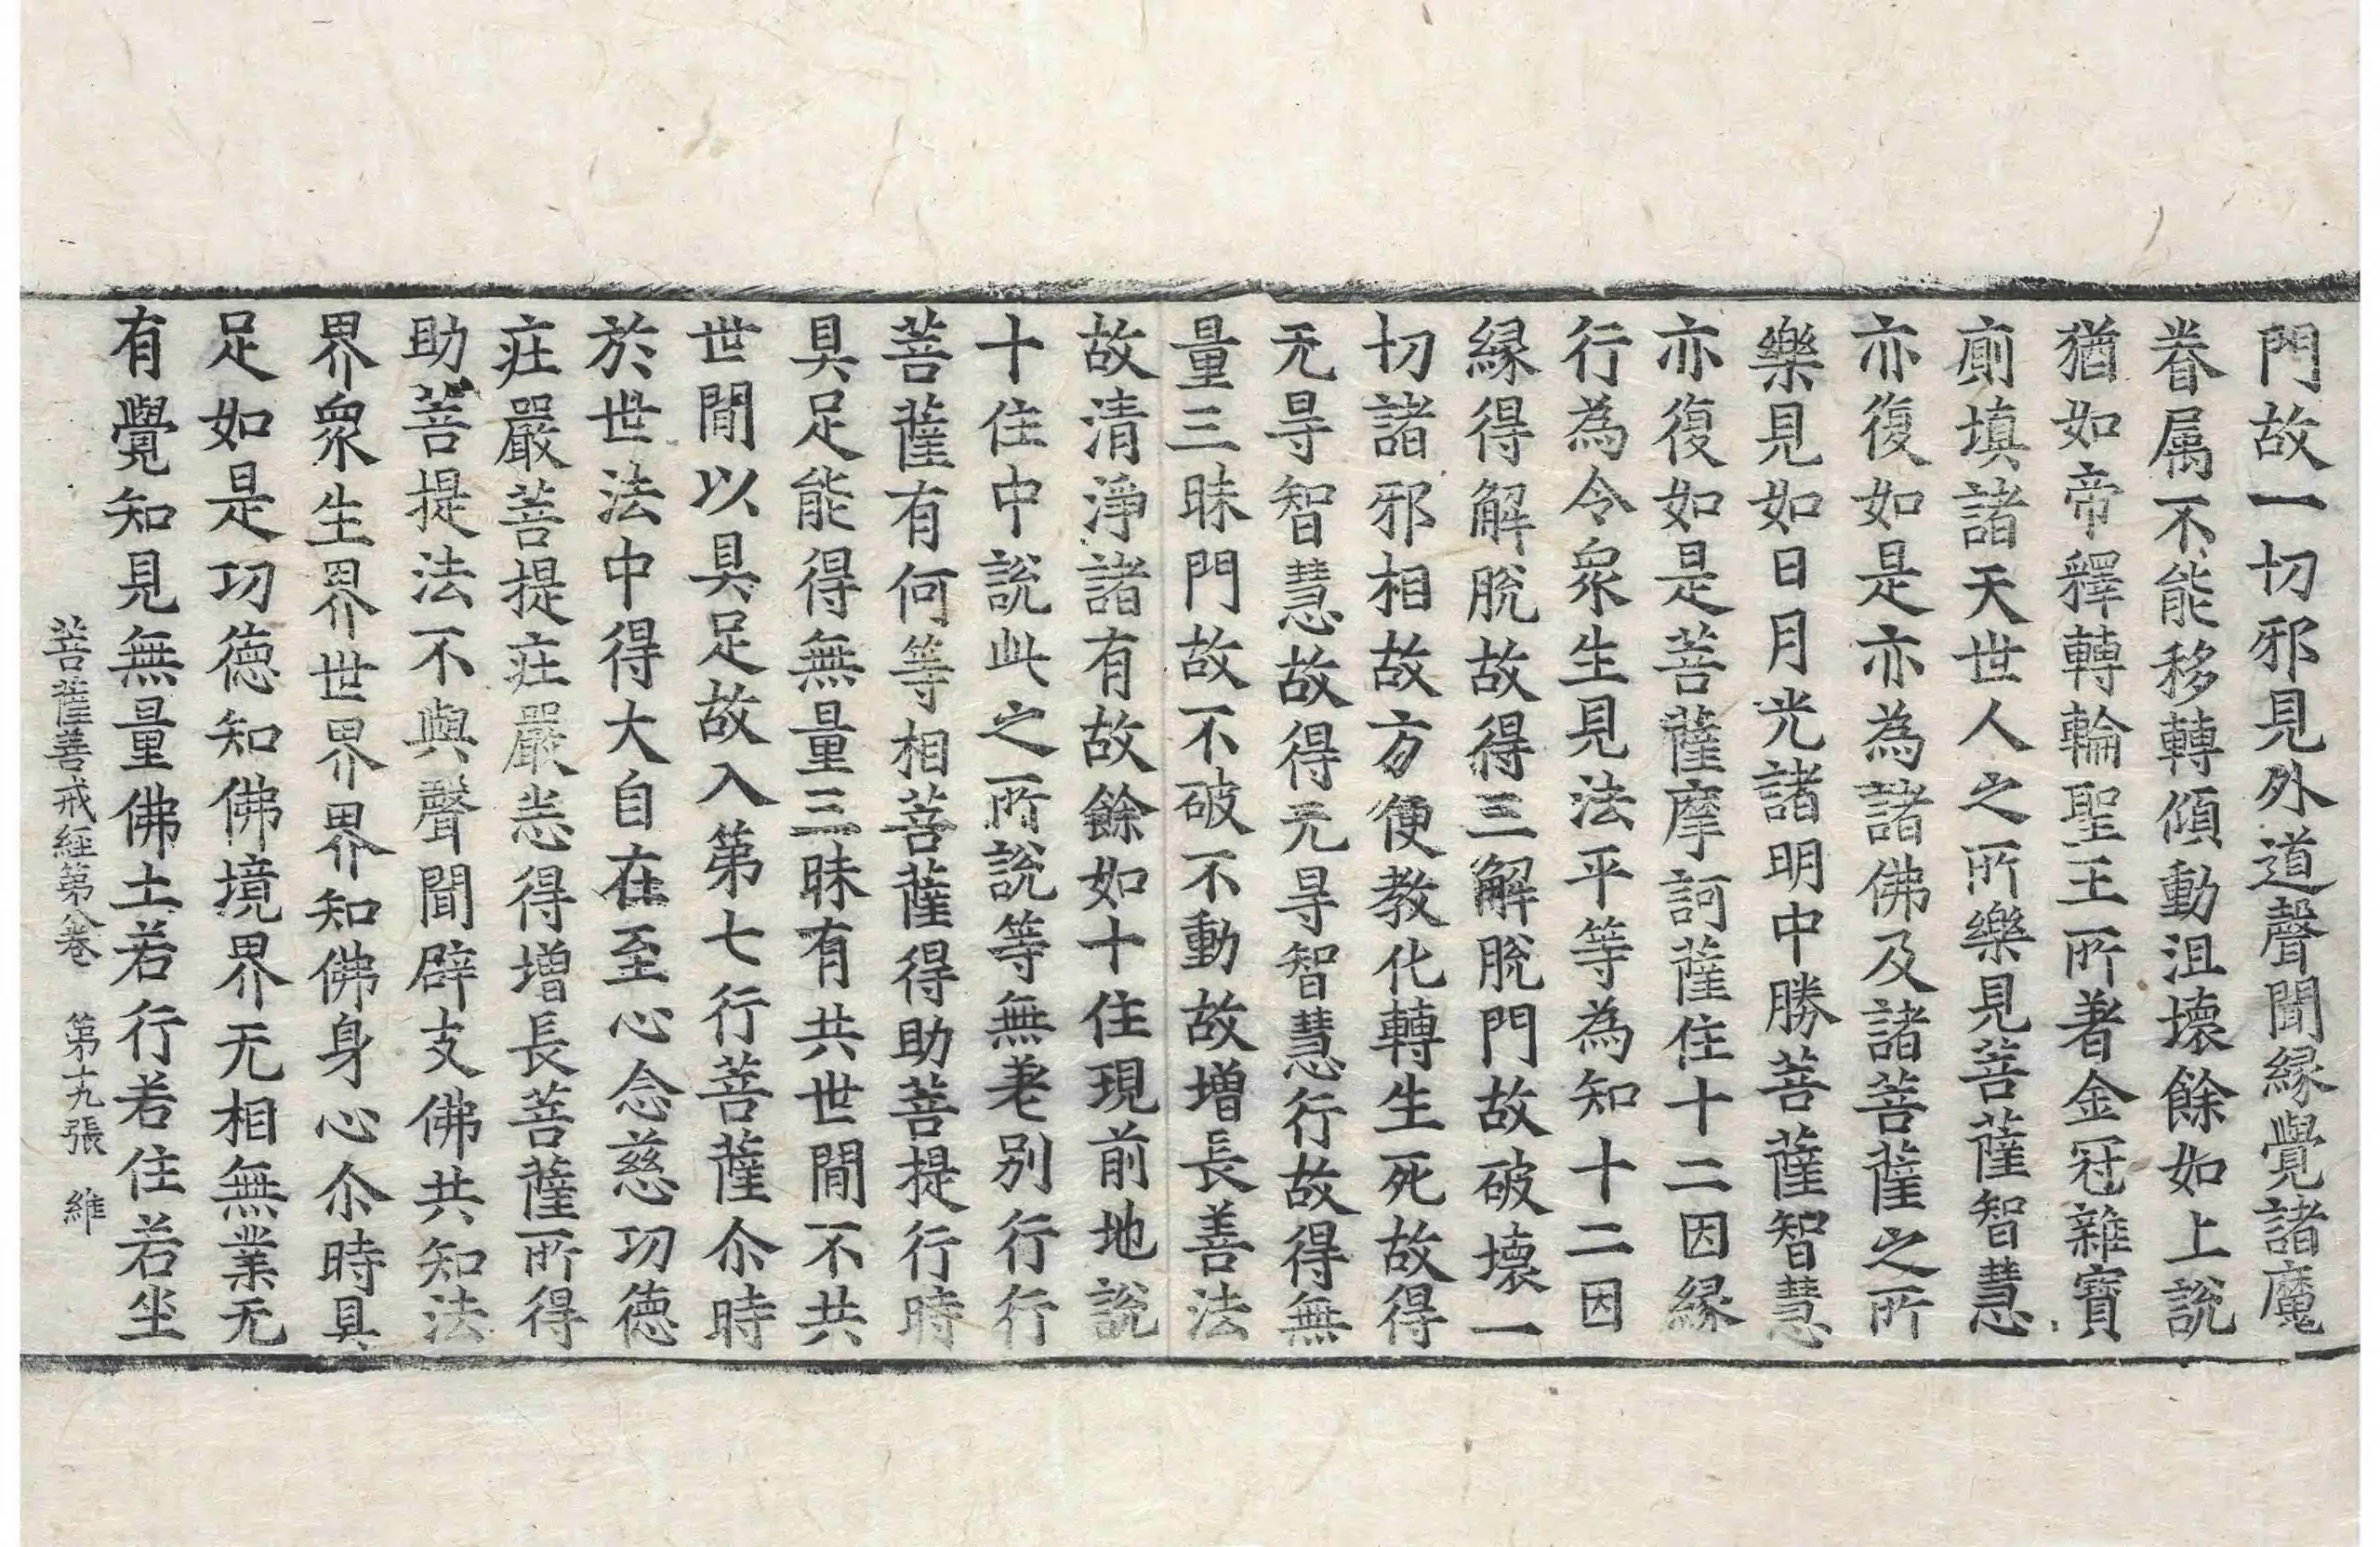 門故一切邪見外道聲聞縁覺諸魔
眷属不能移轉傾動沮壞餘如上說
猶如帝釋轉輪聖王所著金冠雜寶
廁填諸天世人之所樂見菩薩智慧
亦復如是亦為諸佛及諸菩薩之所
樂見如日月光諸明中勝菩薩智慧
亦復如是菩薩摩訶薩住十二因縁
行為令衆生見法平等為知十二因
縁得解脫故得三解脫門故破壞一
切諸邪相故方便教化轉生死故得
无㝵智慧故得无㝵智慧行故得無
量三昧門故不破不動故増長善法
故清淨諸有故餘如十住現前地說
十住中說此之所說等無差别行行
菩薩有何等相菩薩得助菩提行時
具足能得無量三昧有共世間不共
世間以具足故入第七行菩薩尒時
於世法中得大自在至心念慈功德
莊嚴菩提莊嚴恙得增長菩薩所得
助菩提法不與聲聞辟支佛共知法
界衆生界世界界知佛身心尒時具
足如是功德知佛境界无相無業无
有覺知見無量佛土若行若住若坐
菩薩善戒經第八卷　第十九張　維